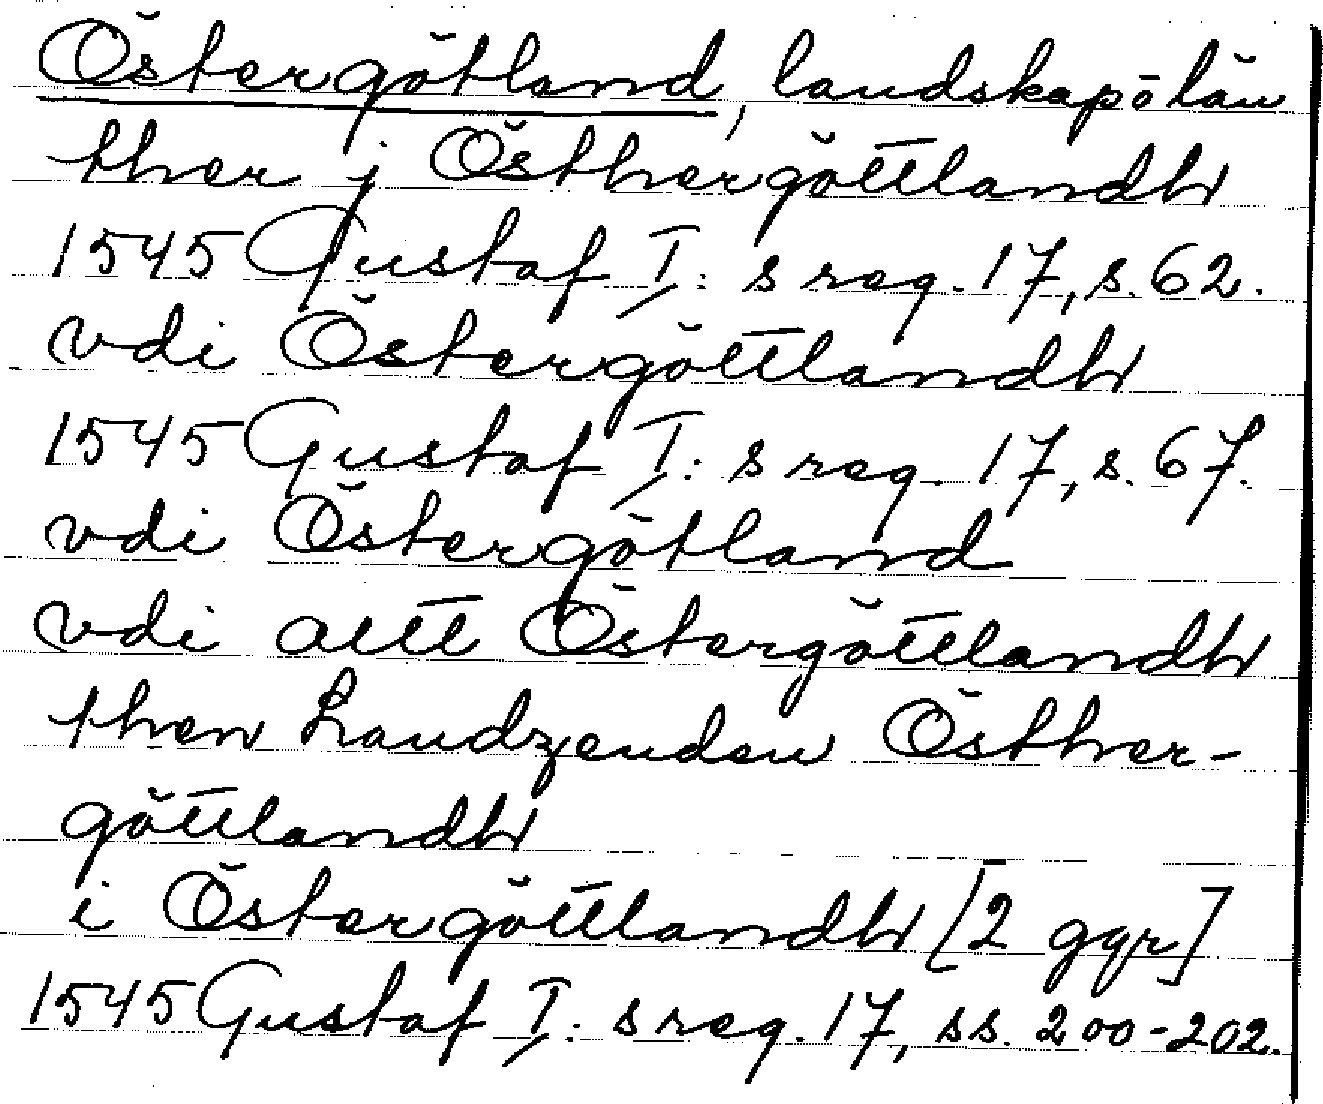 Östergötland, landskap o län
ther j Östhergöttlandh
1545 Gustaf I:s reg. 17, s. 62.
vdi Östergöttlandh
1545 Gustaf I:s reg. 17, s. 67.
vdi Östergötland
vdi altt Östergöttlandh
then Landzenden Östher-
göttlandh
i Östergöttlandh [2 ggr]
1545 Gustaf I:s reg. 17, ss. 200-202.